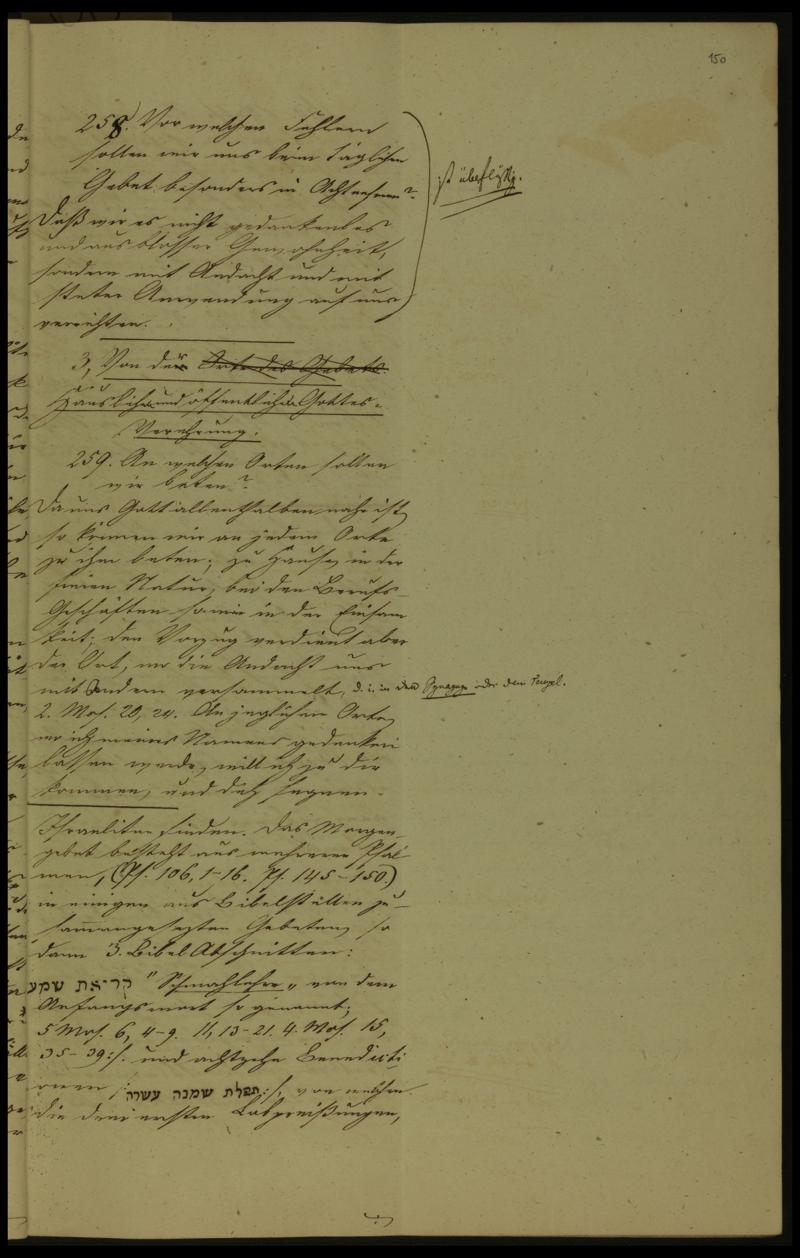 150
258. Vor welchen Fehlern
sollen wir uns beim täglichen
Gebet besonders in Acht nehmen?
ist überflüßig.
Daß wir es nicht gedankenlos
und aus blosser Gewohnheit,
sondern mit Andacht und mit
steter Anwendung auf uns
verrichten.
3, Von der Orte des Gebets.
Häuslichen und öffentlichen Gottes-
Verehrung.
259. An welchen Orten sollen
wir beten?
Da uns Gott allenthalben nahe ist,
so können wir an jedem Orte
zu ihm beten; zu Hause, in der
freien Natur, bei den Berufs-
Geschäften sowie in der Einsam
keit; den Vorzug verdient aber
der Ort, wo die Andacht uns
mit Andern versammelt, d. i. in der Synagoge oder dem Tempel.
2. Mos. 20, 24. An jeglichem Orte,
wo ich meines Namens gedenken
lassen werde, will ich zu dir
kommen, und dich segnen.
Israeliten finden. Das Morgen-
gebet besteht aus mehreren Psal
men, (Ps. 106, 1-16. Ps. 145-150.)
in einigen aus Bibelstellen zu-
sammengesezten Gebeten, so
dann 3. Bibel Abschnitten:
קריאת שמע "Schmahlehre" von dem
Anfangswort so genannt;
5 Mos. 6, 4-9. 11, 13-21. 4. Mos. 15,
35-39:/. und achtzehn Benedicti
onen /: תפלת שמנה עשרה :/, von welchen
die drei ersten Lobpreißungen,